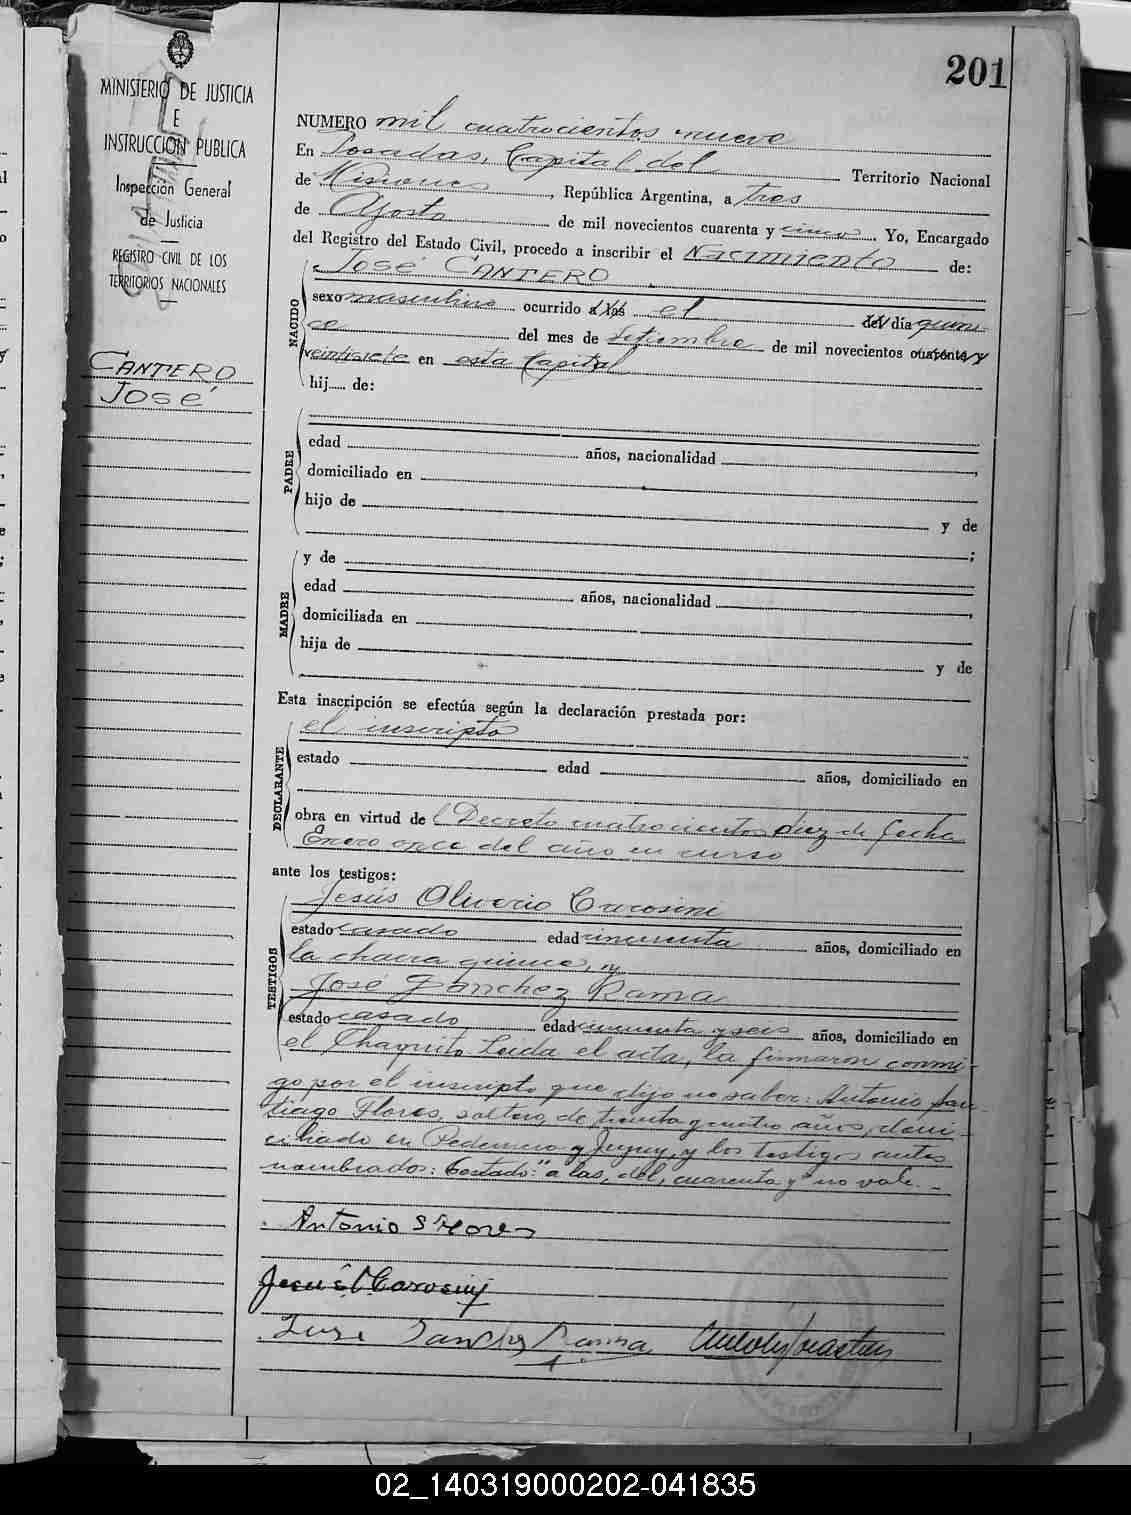 201
MINISTERIO DE JUSTICIA
E
INSTRUCCION PUBLICA
Inspección General
de Justicia
REGISTRO CIVIL DE LOS
TERRITORIOS NACIONALES
CANTERO
José
NUMERO mil cuatrocientos nueve
En Posadas, Capital del Territorio Nacional
de Misiones, República Argentina, a tres
de Agosto de mil novecientos cuarenta y cinco. Yo, Encargado
del Registro del Estado Civil, procedo a inscribir el Nacimiento de:
José CANTERO
NACIDO
sexo masculino ocurrido a las el del día quin
ce del mes de Setiembre de mil novecientos cuarenta y
veintisiete en esta Capital
hij..... de:
PADRE
edad años, nacionalidad ,
domiciliado en
hijo de y de
;
MADRE
y de
edad años, nacionalidad ,
domiciliada en
hija de y de
Esta inscripción se efectúa según la declaración prestada por:
DECLARANTE
el inscripto
estado edad años, domiciliado en
obra en virtud del Decreto cuatrocientos diez de fecha
Enero once del año en curso
ante los testigos:
TESTIGOS
Jesús Oliverio Carosini
estado casado edad cincuenta años, domiciliado en
la chacra quince, y
José Sánchez Rama
estado casado edad cincuenta y seis años, domiciliado en
el Chaquito Leída el acta, la firmaron conmi-
go por el inscripto que dijo no saber: Antonio San-
tiago Flores, soltero, de treinta y cuatro años, domi-
ciliado en Pedernera y Jujuy, y los testigos antes
nombrados: Testado: "a las, del, cuarenta y" no vale.-
Antonio S Flores
Jesús O Carosini
José Sanchez Rama
02_140319000202-041835